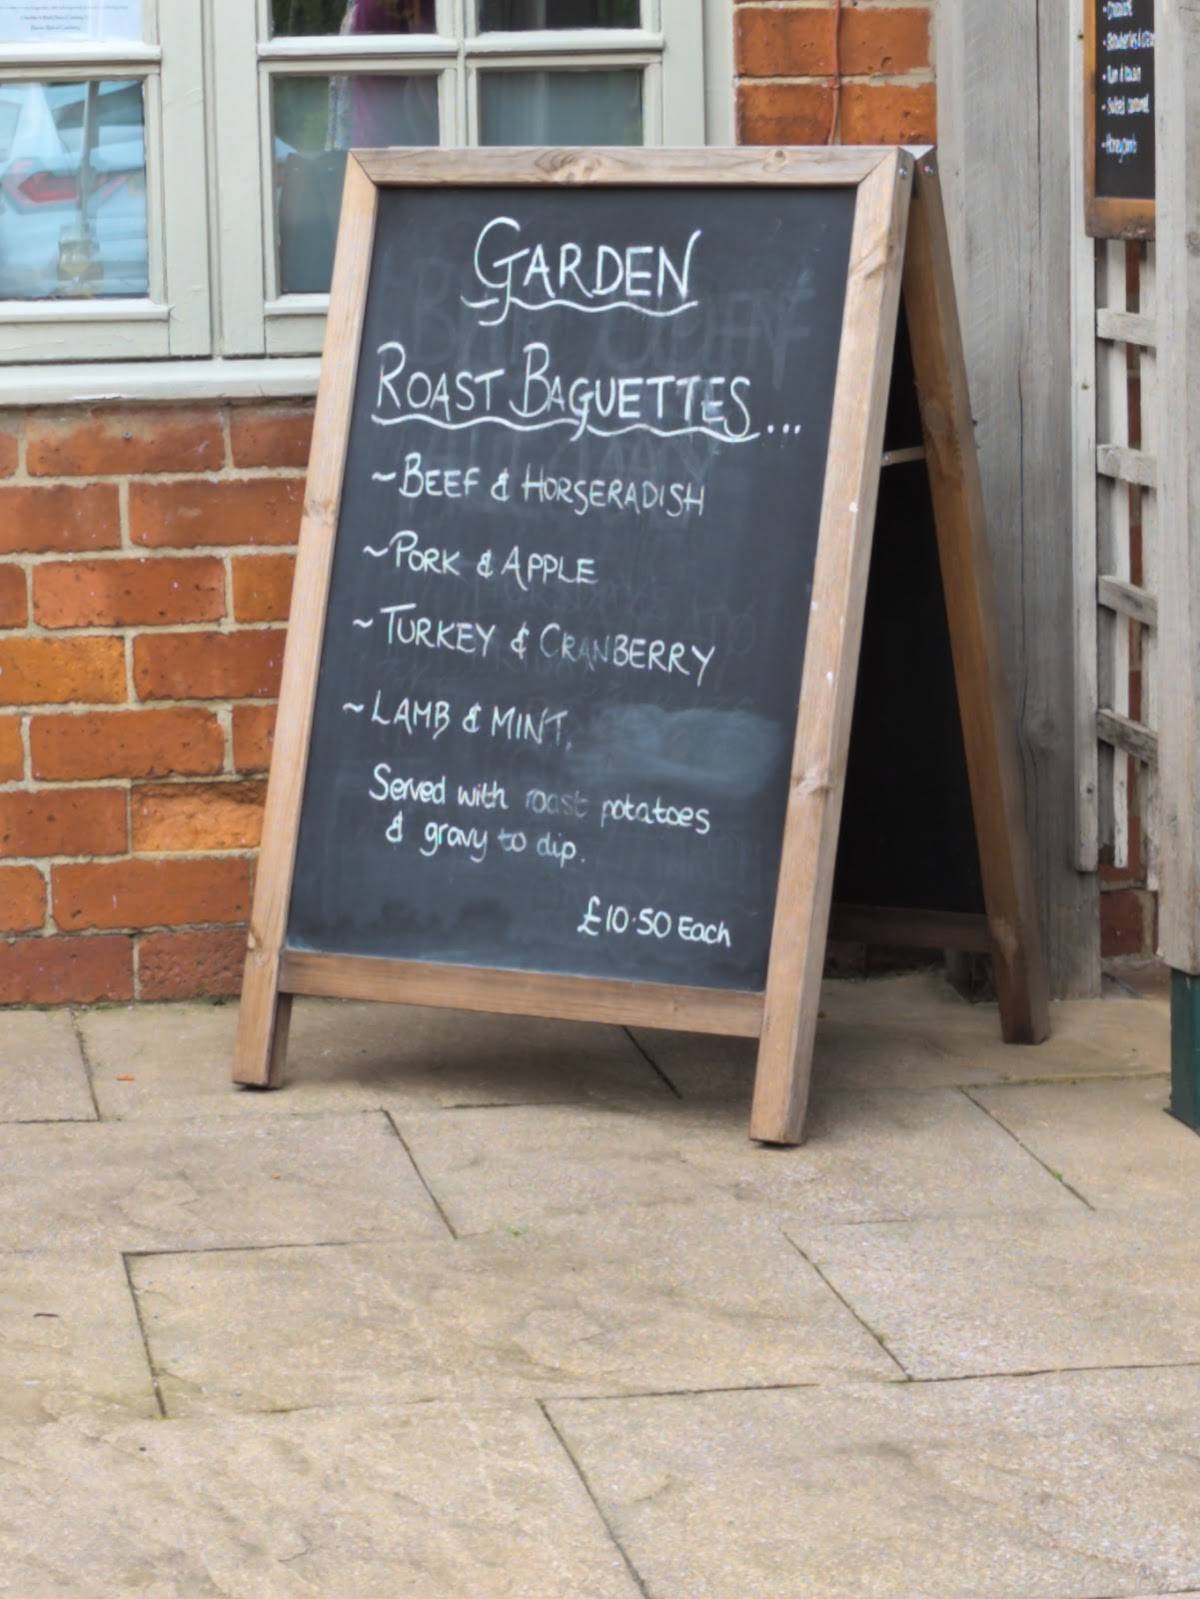 GARDEN
ROAST BAGUETTES...
~BEEF & HORSERADISH
~PORK & APPLE
~TURKEY & CRANBERRY
~LAMB & MINT.
Served with roast potatoes
& gravy to dip.
£10·50 Each
- Rum & raisin
- Salted caramel
- Honeycomb